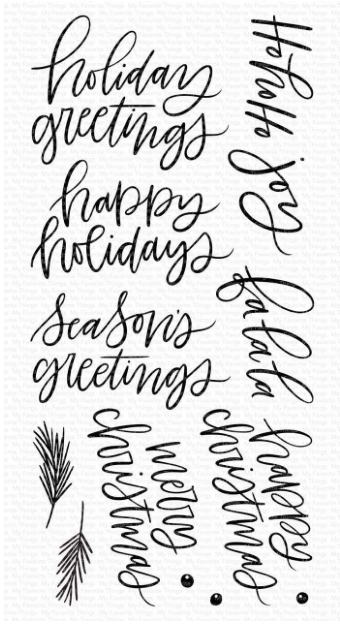 holiday
greetings
happy
holidays
season's
greetings
HoHoHo
joy
falala
merry
christmas
happy
christmas